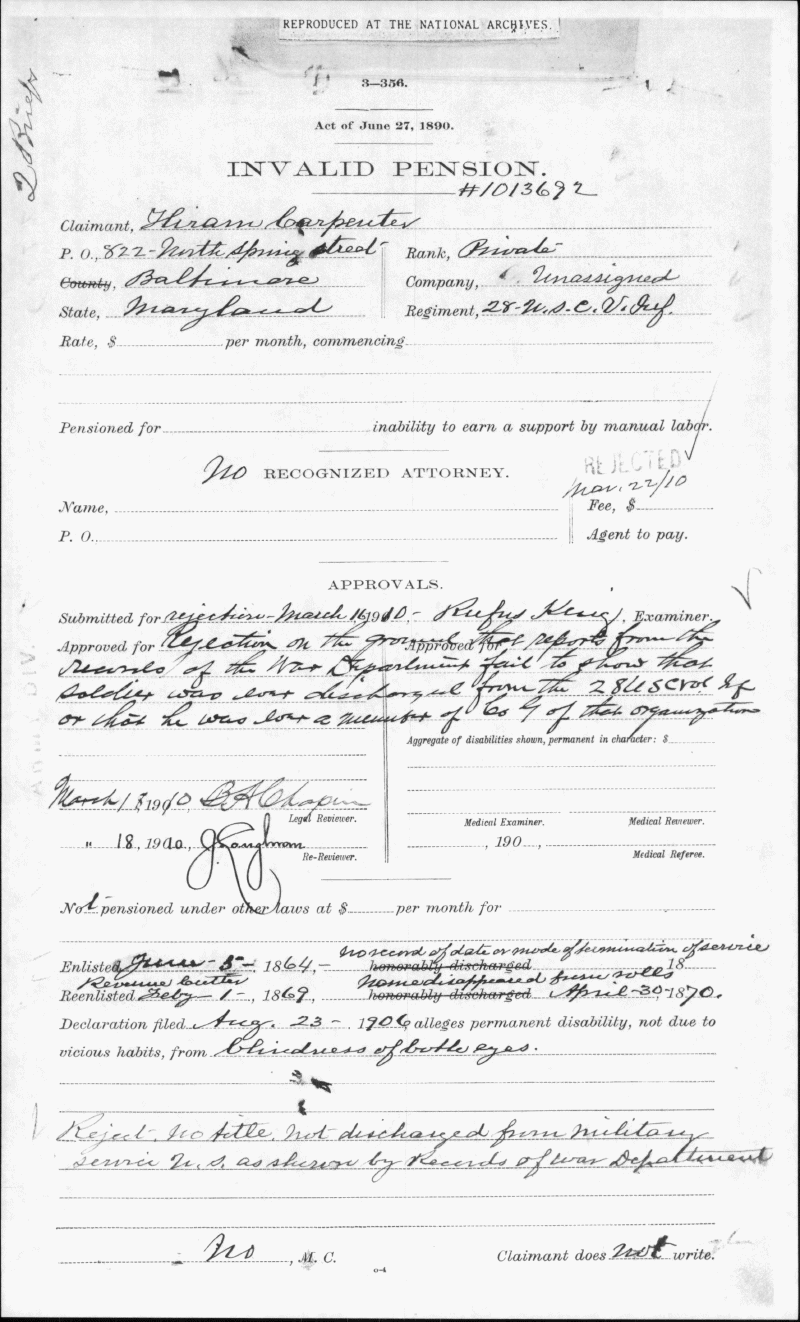 REPRODUCED AT THE NATIONAL ARCHIVES.
2 Briefs
3—356.
Act of June 27, 1890.
INVALID PENSION.
#1013692
Claimant, Hiram Carpenter
P. O., 822 - North Spring Street
Rank, Private
County, Baltimore
Company, Unassigned
State, Maryland
Regiment, 28 - U.S.C.V. Inf.
Rate, $ per month, commencing
Pensioned for inability to earn a support by manual labor.
REJECTED
No RECOGNIZED ATTORNEY.
Mar. 22/10
Name,
Fee, $
P. O.
Agent to pay.
APPROVALS.
Submitted for rejection - March 16, 1910, - Rufus King, Examiner.
Approved for Rejection on the ground that reports from the
Approved for
records of the War Department fail to show that
soldier was ever discharged from the 28 U S C Vol Inf
or that he was ever a member of Co G of that organization
Aggregate of disabilities shown, permanent in character: $
March 17, 1910, B H Chapin
Legal Reviewer.
Medical Examiner.
Medical Reviewer.
" 18, 1910,
Re-Reviewer.
, 190 ,
Medical Referee.
Not pensioned under other laws at $ per month for
no record of date or mode of termination of service
Enlisted June - 5 -, 1864, - honorably discharged 18
Revenue Cutter
Name disappeared from rolls
Reenlisted Feby - 1 -, 1869, honorably discharged April - 30, 1870.
Declaration filed Aug. 23 - 1906 alleges permanent disability, not due to
vicious habits, from blindness of both eyes.
Reject. No title. Not discharged from military
service U.S. as shown by Records of War Department
No, M. C.
Claimant does not write.
6-4